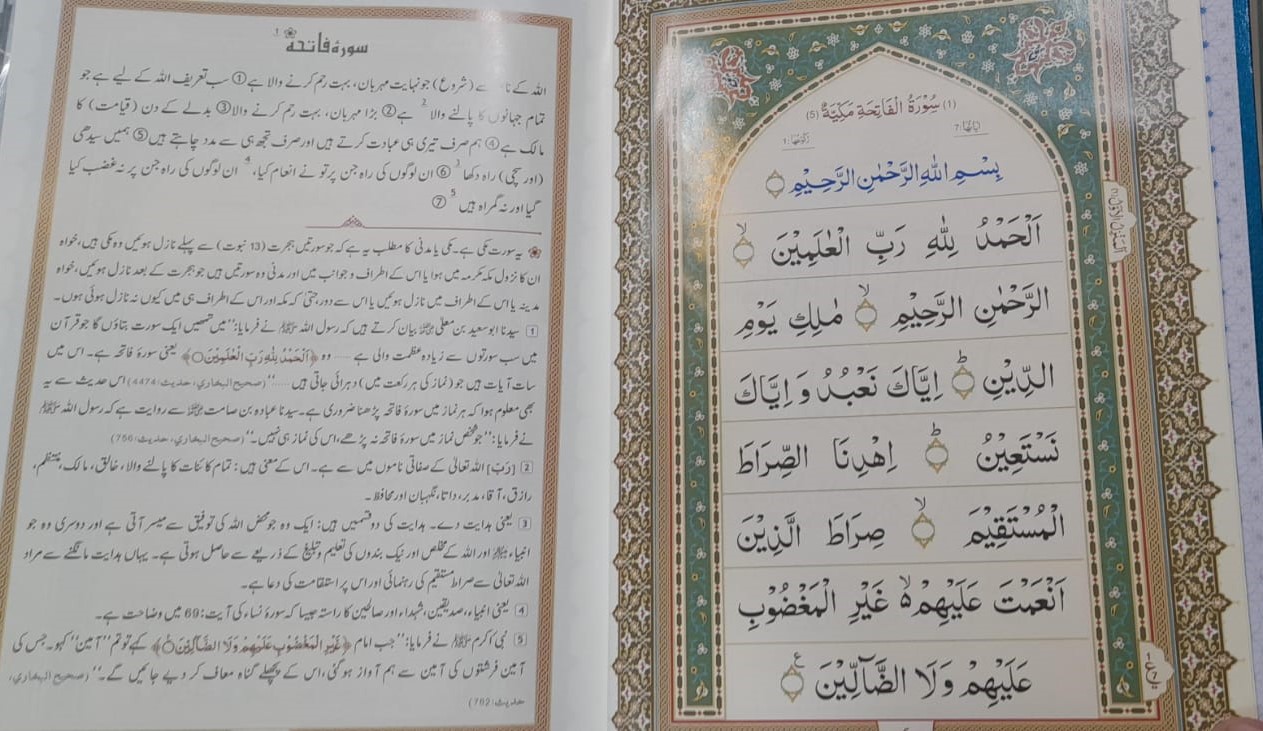 (1) سُوْرَةُ الْفَاتِحَةِ مَكِّيَّةٌ (5)
اٰيَاتُهَا:7
رُكُوْعُهَا:1
بِسْمِ اللّٰهِ الرَّحْمٰنِ الرَّحِيْمِ
اَلْحَمْدُ لِلّٰهِ رَبِّ الْعٰلَمِيْنَ
الرَّحْمٰنِ الرَّحِيْمِ مٰلِكِ يَوْمِ
الدِّيْنِ اِيَّاكَ نَعْبُدُ وَ اِيَّاكَ
نَسْتَعِيْنُ اِهْدِنَا الصِّرَاطَ
الْمُسْتَقِيْمَ صِرَاطَ الَّذِيْنَ
اَنْعَمْتَ عَلَيْهِمْ غَيْرِ الْمَغْضُوْبِ
عَلَيْهِمْ وَلَا الضَّآلِّيْنَ
سورۂ فاتحہ
اللہ کے نام سے (شروع) جو نہایت مہربان، بہت رحم کرنے والا ہے ① سب تعریف اللہ کے لیے ہے جو
تمام جہانوں کا پالنے والا 2 ہے ② بڑا مہربان، بہت رحم کرنے والا ③ بدلے کے دن (قیامت) کا
مالک ہے ④ ہم صرف تیری ہی عبادت کرتے ہیں اور صرف تجھ ہی سے مدد چاہتے ہیں ⑤ ہمیں سیدھی
(اور سچی) راہ دکھا 3 ⑥ ان لوگوں کی راہ جن پر تو نے انعام کیا، 4 ان لوگوں کی راہ جن پر نہ غضب کیا
گیا اور نہ گمراہ ہیں 5 ⑦
یہ سورت مکی ہے۔ مکی یا مدنی کا مطلب یہ ہے کہ جو سورتیں ہجرت (13 نبوت) سے پہلے نازل ہوئیں وہ مکی ہیں، خواہ
ان کا نزول مکہ مکرمہ میں ہوا یا اس کے اطراف و جوانب میں اور مدنی وہ سورتیں ہیں جو ہجرت کے بعد نازل ہوئیں، خواہ
مدینہ یا اس کے اطراف میں نازل ہوئیں یا اس سے دور، حتیٰ کہ مکہ اور اس کے اطراف ہی میں کیوں نہ نازل ہوئی ہوں۔
1 سیدنا ابوسعید بن معلّٰی ؓ بیان کرتے ہیں کہ رسول اللہ ﷺ نے فرمایا: ”میں تمھیں ایک سورت بتاؤں گا جو قرآن
میں سب سورتوں سے زیادہ عظمت والی ہے ---- وہ ﴿اَلْحَمْدُ لِلّٰهِ رَبِّ الْعٰلَمِيْنَ﴾ یعنی سورۂ فاتحہ ہے۔ اس میں
سات آیات ہیں جو (نماز کی ہر رکعت میں) دہرائی جاتی ہیں ....“ (صحیح البخاري، حدیث: 4474) اس حدیث سے یہ
بھی معلوم ہوا کہ ہر نماز میں سورۂ فاتحہ پڑھنا ضروری ہے۔ سیدنا عبادہ بن صامت ؓ سے روایت ہے کہ رسول اللہ ﷺ
نے فرمایا: ”جو شخص نماز میں سورۂ فاتحہ نہ پڑھے، اس کی نماز ہی نہیں۔“ (صحیح البخاري، حدیث: 756)
2 [رَبّ] اللہ تعالیٰ کے صفاتی ناموں میں سے ہے۔ اس کے معنی ہیں: تمام کائنات کا پالنے والا، خالق، مالک، منتظم،
رازق، آقا، مدبر، داتا، نگہبان اور محافظ۔
3 یعنی ہدایت دے۔ ہدایت کی دو قسمیں ہیں: ایک وہ جو محض اللہ کی توفیق سے میسر آتی ہے اور دوسری وہ جو
انبیاء ﷩ اور اللہ کے مخلص اور نیک بندوں کی تعلیم و تبلیغ کے ذریعے سے حاصل ہوتی ہے۔ یہاں ہدایت مانگنے سے مراد
اللہ تعالیٰ سے صراط مستقیم کی رہنمائی اور اس پر استقامت کی دعا ہے۔
4 یعنی انبیاء، صدیقین، شہداء اور صالحین کا راستہ جیسا کہ سورۂ نساء کی آیت: 69 میں وضاحت ہے۔
5 نبی اکرم ﷺ نے فرمایا: ”جب امام ﴿غَيْرِ الْمَغْضُوْبِ عَلَيْهِمْ وَلَا الضَّآلِّيْنَ﴾ کہے تو تم ”آمین“ کہو۔ جس کی
آمین فرشتوں کی آمین سے ہم آواز ہو گئی، اس کے پچھلے گناہ معاف کر دیے جائیں گے۔“ (صحیح البخاري،
حدیث: 782)